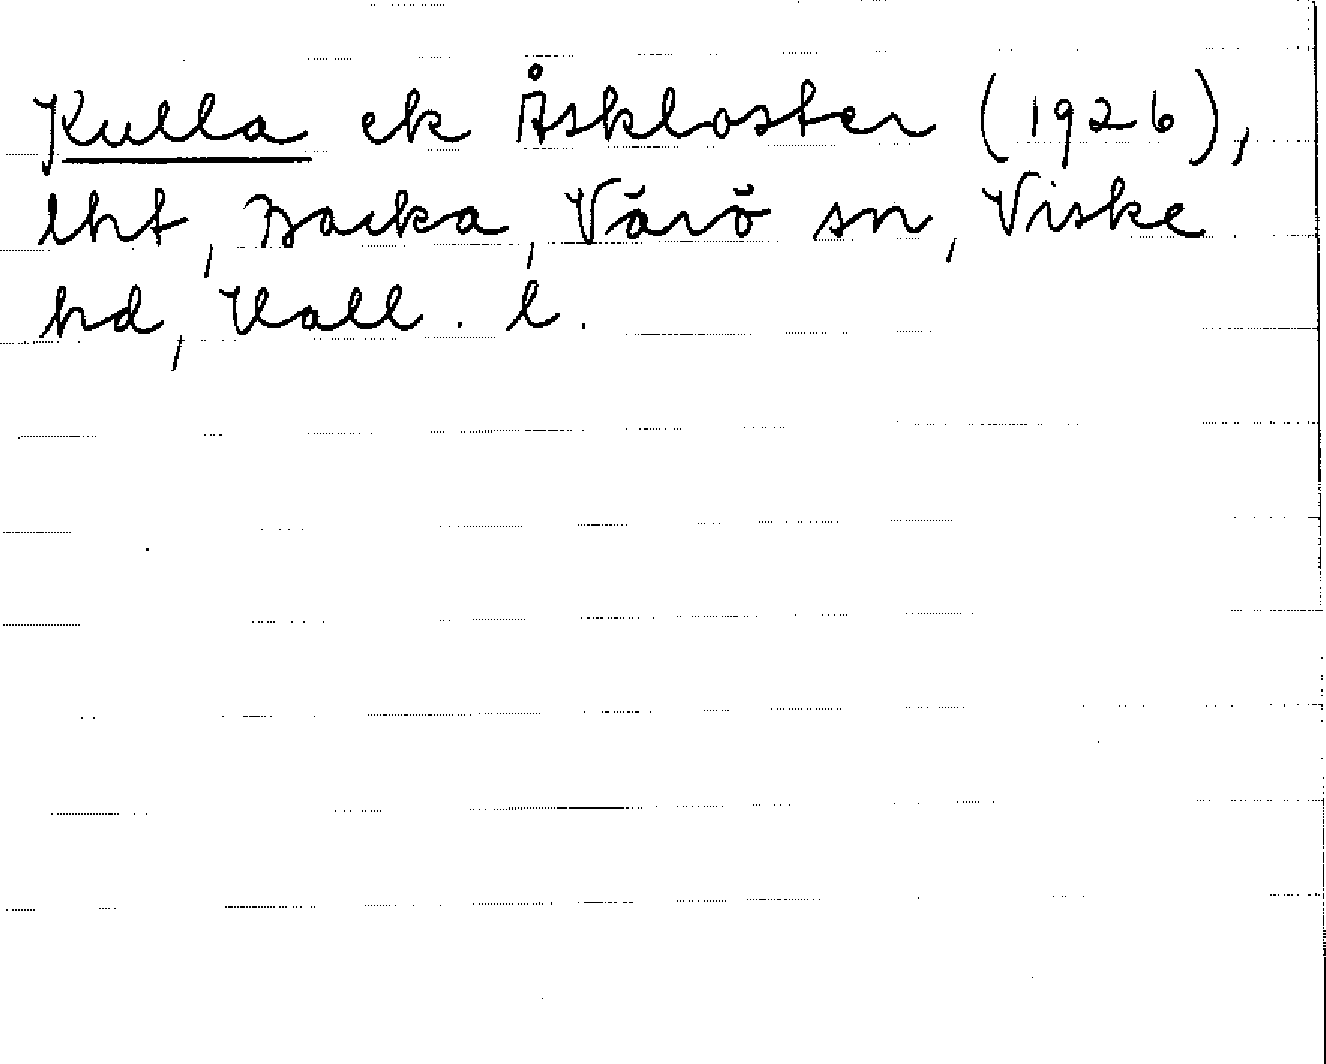 Kulla ek Åskloster (1926),
lht, Backa, Värö sn, Viske
hd, Hall. l.